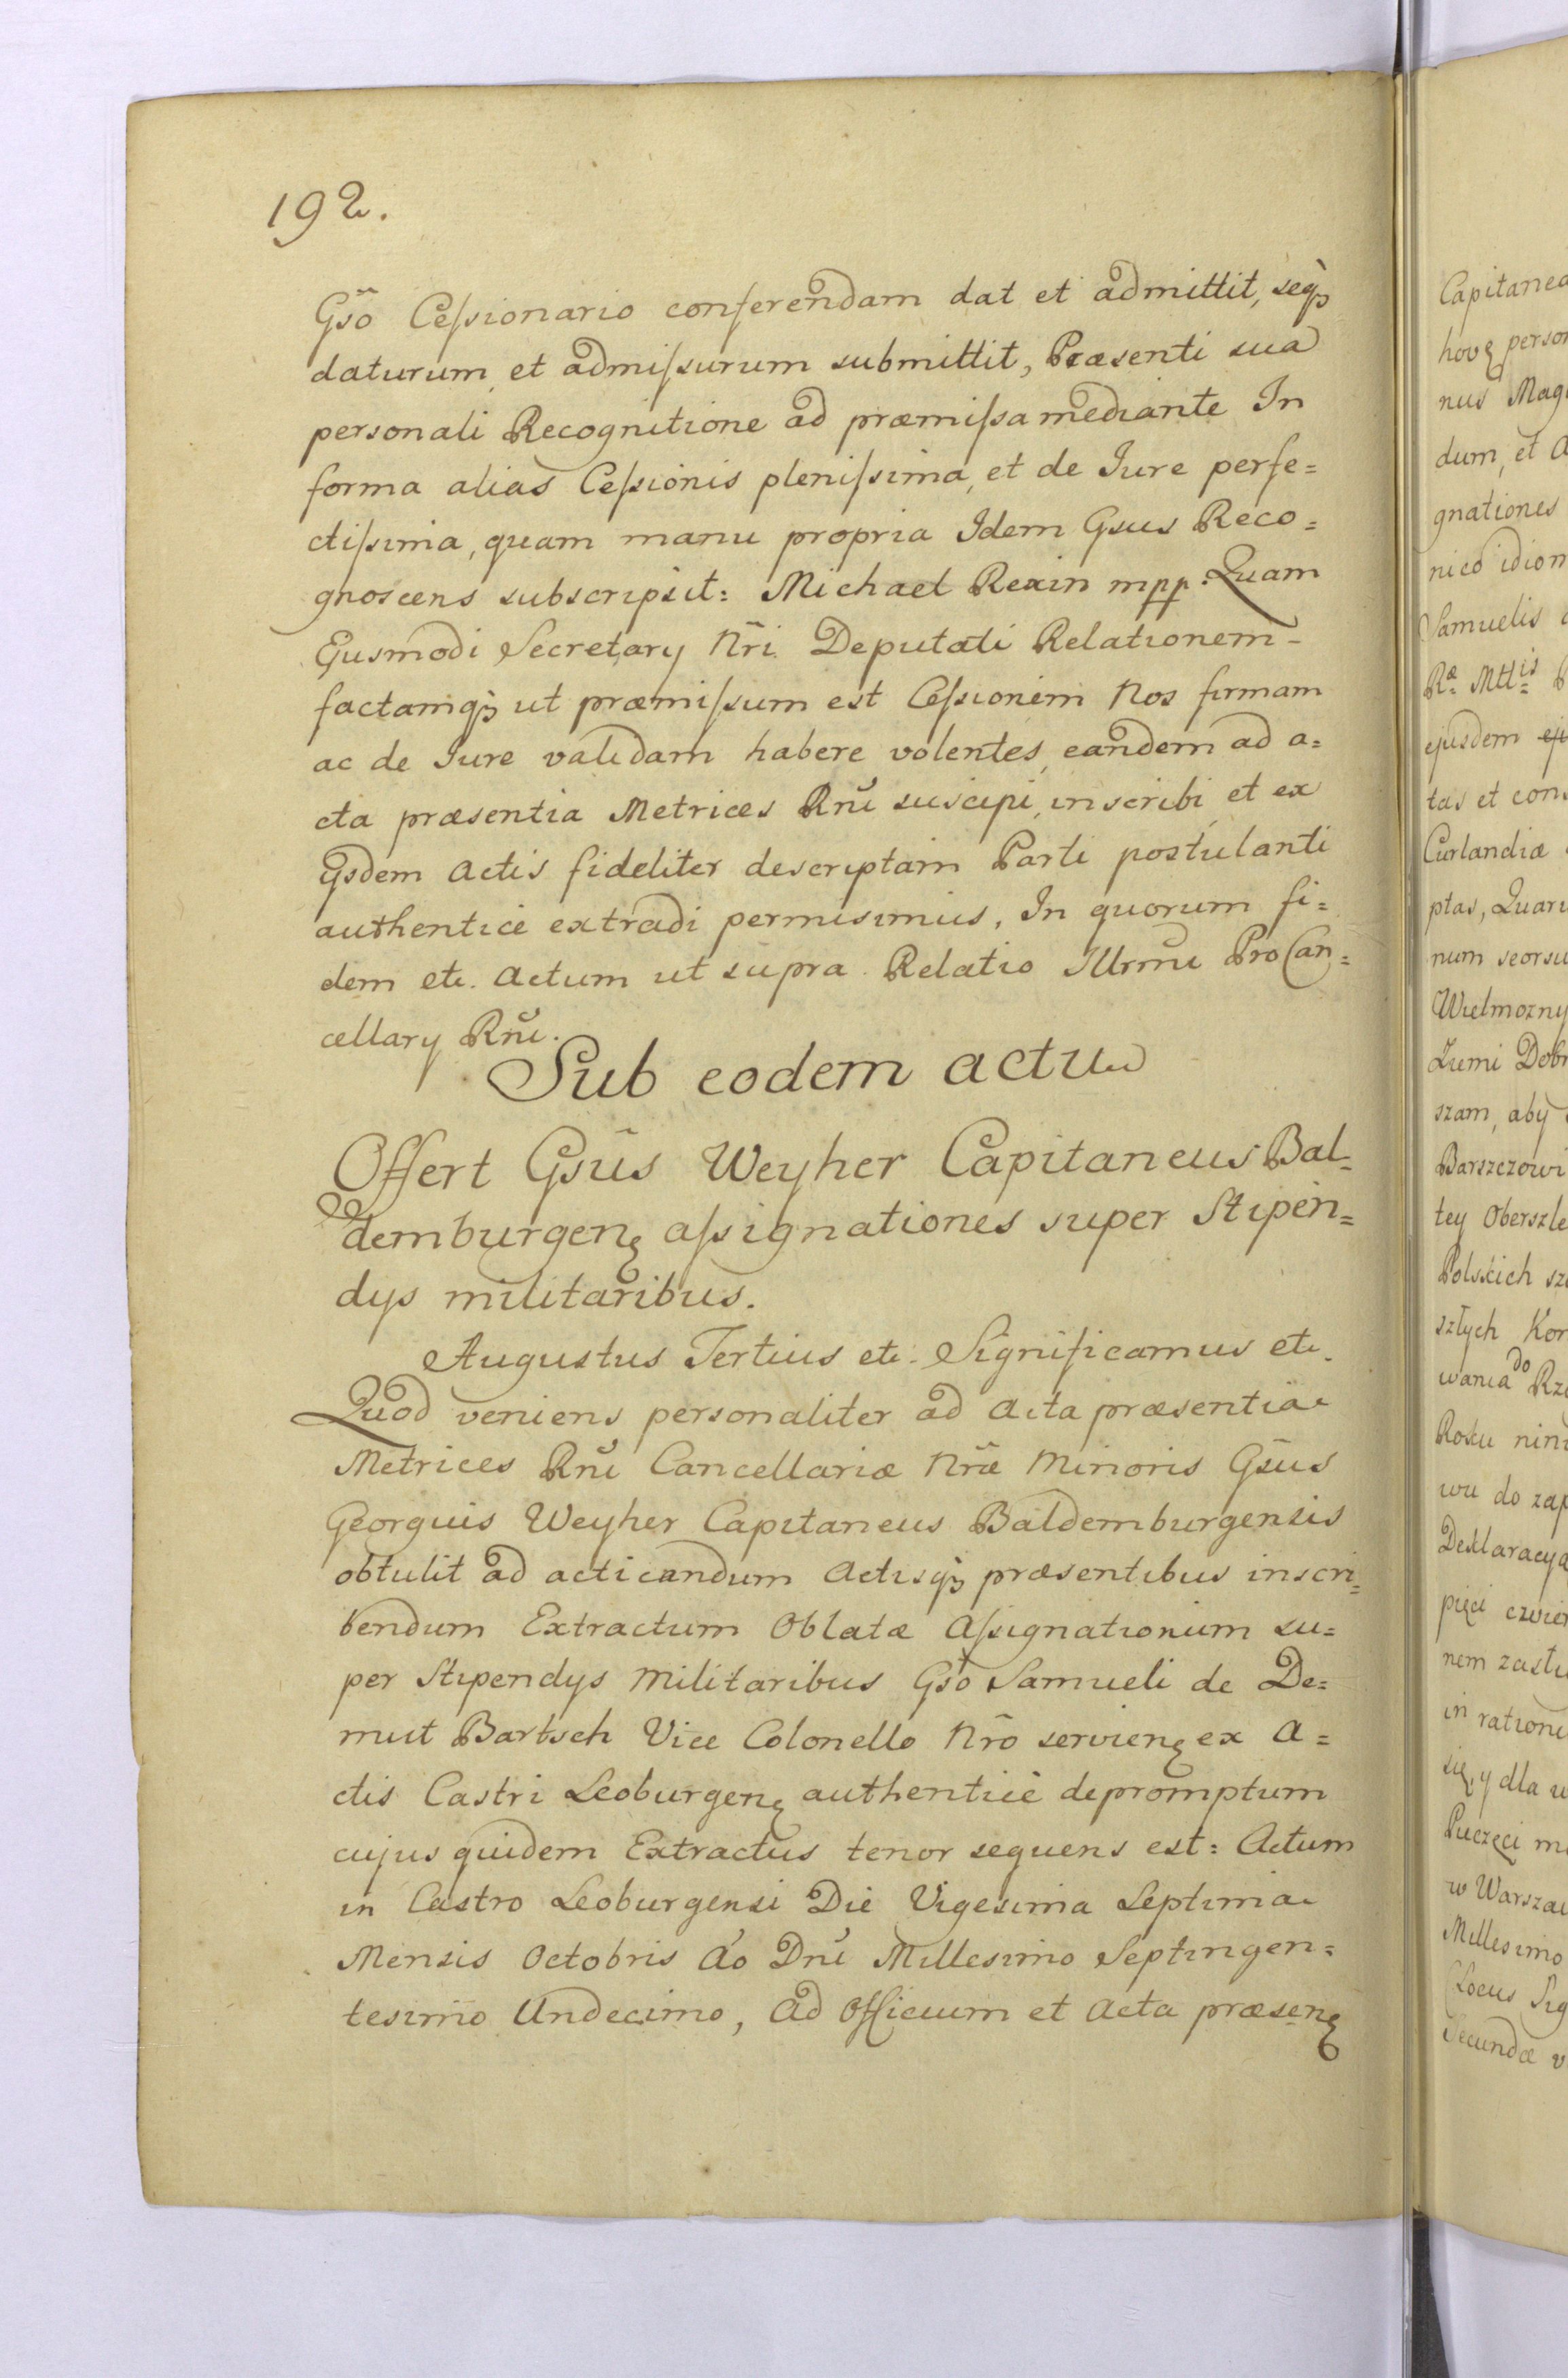 192.
Gs̃o Ceſsionario conferendam dat et admittit, seq́ꝫ
daturum et admiſsurum submittit, Præsenti sua
personali Recognitione ad præmiſsa mediante In
forma alias Ceſsionis pleniſsima, et de Jure perfe=
ctiſsima, quam manu propria Idem Gsus Reco=
gnoscens subscripsit: Michael Rexin mpp. Quam
Ejusmodi Secretary Nr̃i Deputati Relationem
factamqꝫ ut præmiſsum est Ceſsionem Nos firmam
ac de Jure validam habere volentes, eandem ad a=
cta præsentia Metrices Rñi suscipi, inscribi, et ex
ijsdem Actis fideliter descriptam Parti postulanti
authentice extradi permisimus. In quorum fi=
dem etc. Actum ut supra. Relatio Illrmi ProCan=
cellary Rñi.
Sub eodem actu
Offert Gsũs Weyher Capitaneus Bal=
demburgenȩ aſsignationes super Stipen=
dys militaribus.
Augustus Tertius etc. Significamus etc.
Quod veniens personaliter ad Acta præsentia
Metrices Rñi Cancellariæ Nr̃æ Minoris Gsũs
Georgius Weyher Capitaneus Baldemburgensis
obtulit ad acticandum Actisqꝫ præsentibus inscri=
bendum Extractum Oblatæ Aſsignationum su=
per Stipendys Militaribus Gs̃o Samueli de De=
mut Bartsch Vice Colonello Nr̃o servienȩ ex A=
ctis Castri Leoburgenȩ authenticè depromptum
cujus quidem Extractus tenor sequens est: Actum
in Castro Leoburgensi Die Vigesima Septima
Mensis Octobris Ao Dñi Millesimo Septingen=
tesimo Undecimo, Ad Officium et Acta præsenȩ
Capitanea
hovȩ person
nus Mag
dum, et A
gnationes
nico idiom
Samuelis
Ræ Mttis
ejusdem
tas et con
Curlandiæ
ptas, Quar
num seorsu
Wielmozny
Zumi Dob
szam, aby
Barszczowi
tey Oberszle
Polskich sz
szłych Kor
wania do Rze
Roku nin
wu do zap
Deklaracya
pięci czwier
nem zasłu
in ratione
się, y dla
Puczęci m
w Warszaw
Millesimo
(Locus Sig
Secundæ v